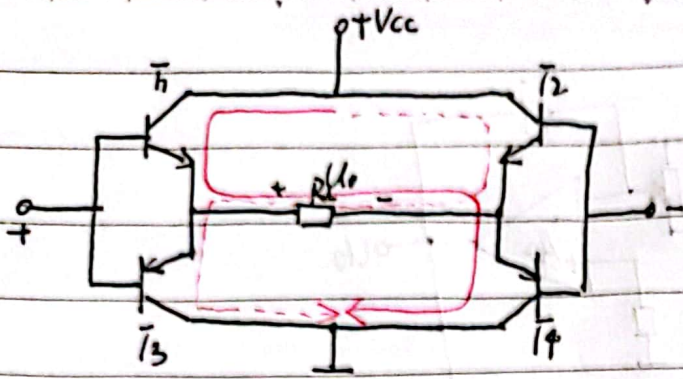 +Vcc
T1 T2
+ RL U0 -
+ -
T3 T4